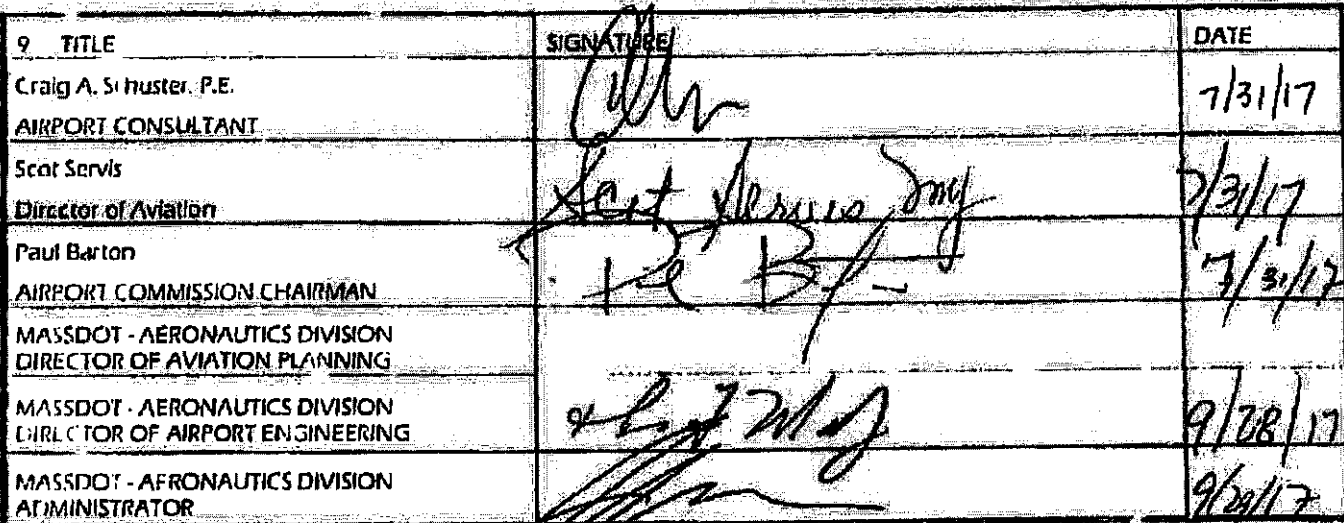 9 TITLE SIGNATURE DATE
Craig A. Schuster, P.E.
AIRPORT CONSULTANT 7/31/17
Scot Servis
Director of Aviation 7/31/17
Paul Barton
AIRPORT COMMISSION CHAIRMAN 7/31/17
MASSDOT - AERONAUTICS DIVISION
DIRECTOR OF AVIATION PLANNING
MASSDOT - AERONAUTICS DIVISION
DIRECTOR OF AIRPORT ENGINEERING 9/28/17
MASSDOT - AERONAUTICS DIVISION
ADMINISTRATOR 9/29/17